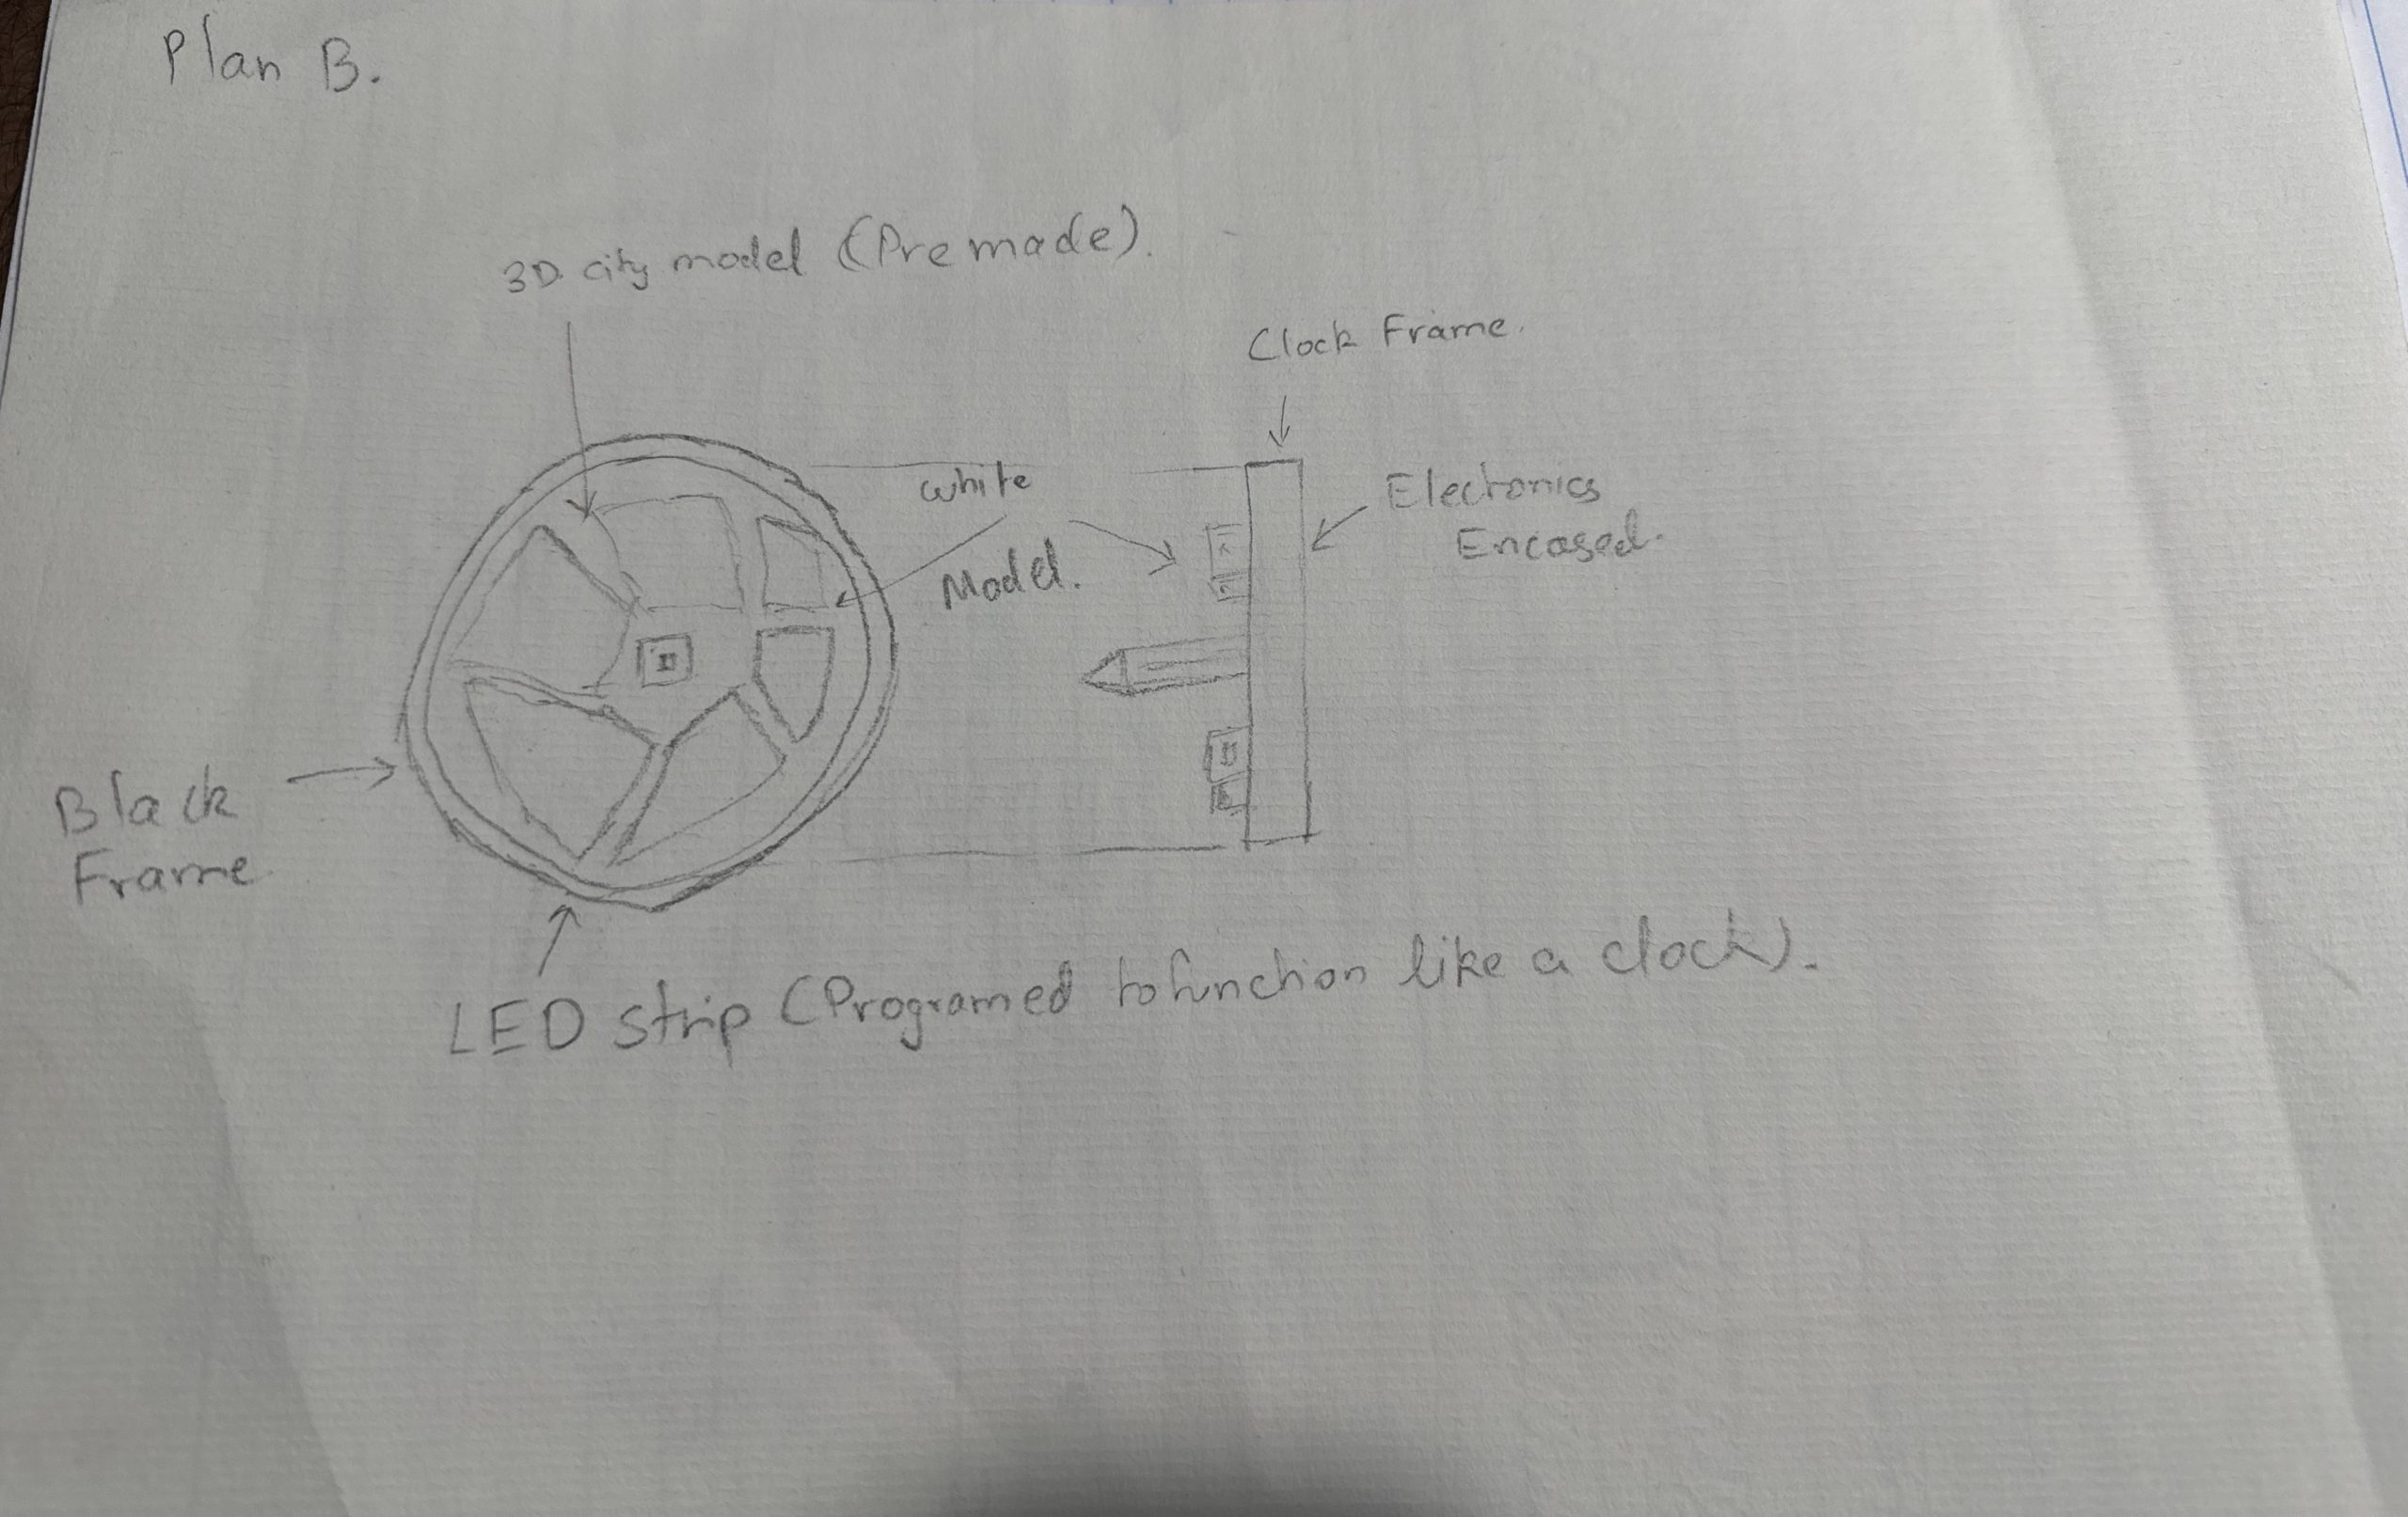 Plan B.
3D city model (Premade).
Clock Frame.
White
Model.
Electronics
Encased.
Black
Frame
LED strip (Programed to function like a clock).